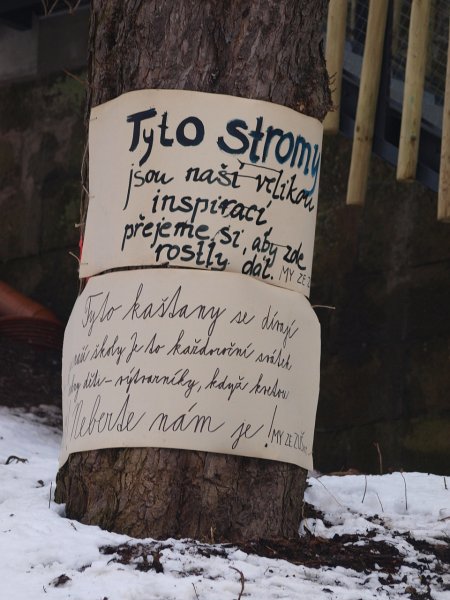 Tyto stromy
jsou naší velikou
inspirací
přejeme si, aby zde
rostly dál. MY ZE Z
Tyto kaštany se dívají
naší školy Je to každoroční svátek
děti - výtvarníky, když kvetou
Neberte nám je! MY ZE ZUŠ